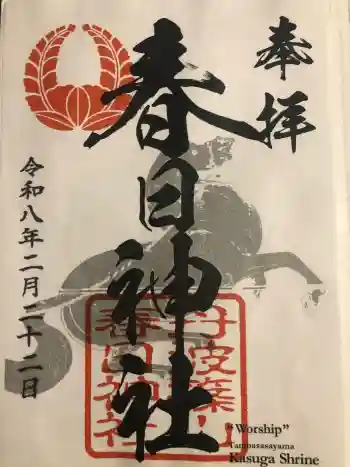 奉拝
春日神社
令和八年二月二十二日
丹波篠山
春日神社
“Worship”
Tambasasayama
Kasuga Shrine